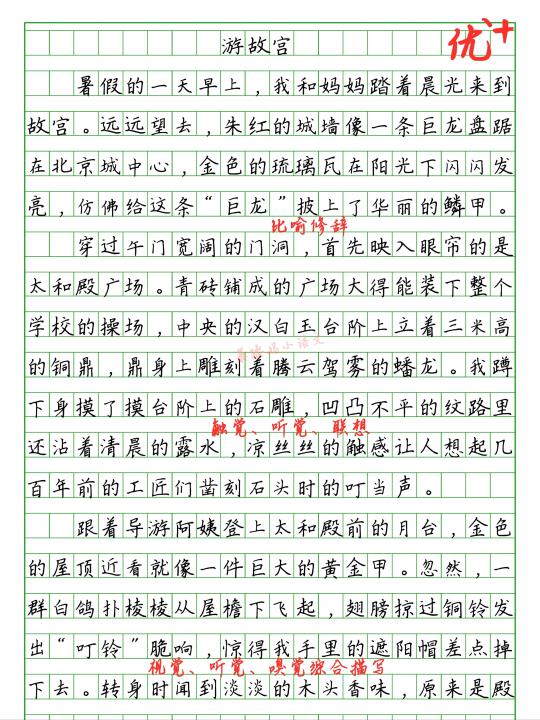 游故宫
优++
暑假的一天早上，我和妈妈踏着晨光来到
故宫。远远望去，朱红的城墙像一条巨龙盘踞
在北京城中心，金色的琉璃瓦在阳光下闪闪发
亮，仿佛给这条“巨龙”披上了华丽的鳞甲。
比喻修辞
穿过午门宽阔的门洞，首先映入眼帘的是
太和殿广场。青砖铺成的广场大得能装下整个
学校的操场，中央的汉白玉台阶上立着三米高
的铜鼎，鼎身上雕刻着腾云驾雾的蟠龙。我蹲
下身摸了摸台阶上的石雕，凹凸不平的纹路里
触觉、听觉、联想
还沾着清晨的露水，凉丝丝的触感让人想起几
百年前的工匠们凿刻石头时的叮当声。
跟着导游阿姨登上太和殿前的月台，金色
的屋顶近看就像一件巨大的黄金甲。忽然，一
群白鸽扑棱棱从屋檐下飞起，翅膀掠过铜铃发
出“叮铃”脆响，惊得我手里的遮阳帽差点掉
视觉、听觉、嗅觉综合描写
下去。转身时闻到淡淡的木头香味，原来是殿